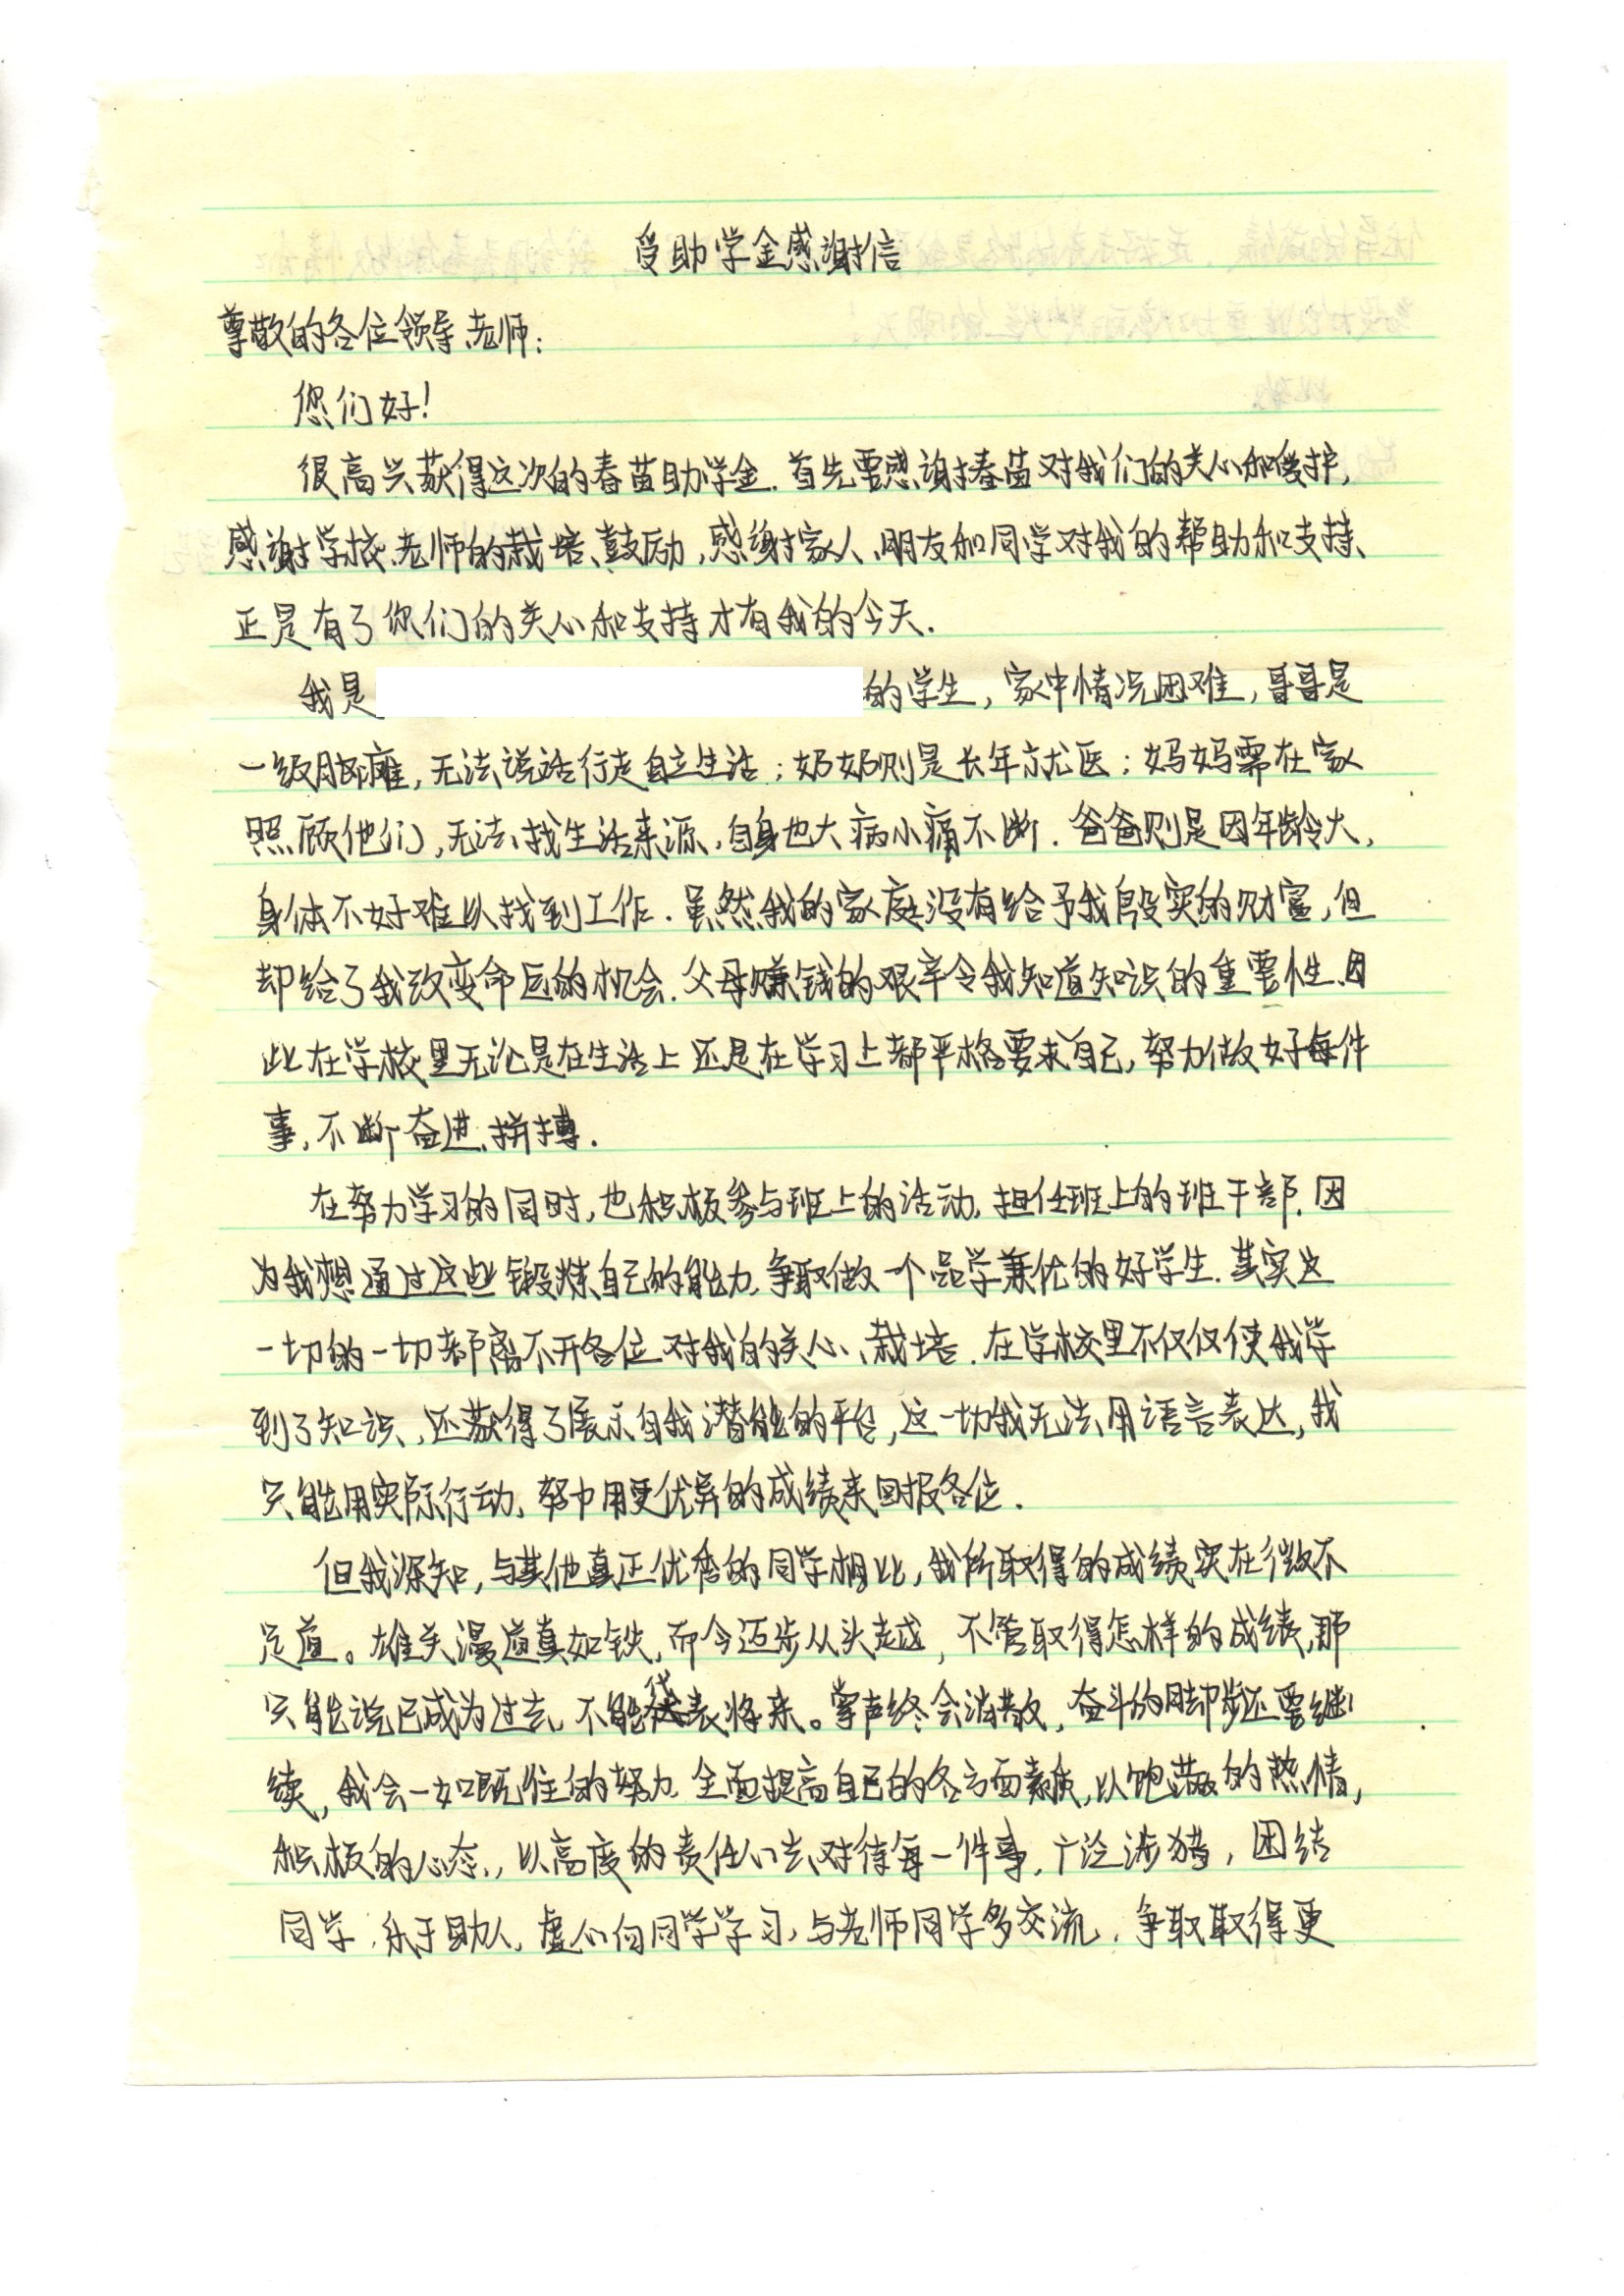 受助学金感谢信
尊敬的各位领导、老师:
您们好!
很高兴获得这次的春苗助学金.首先要感谢春苗对我们的关心和爱护,
感谢学校、老师的栽培、鼓励,感谢家人、朋友和同学对我的帮助和支持、
正是有了你们的关心和支持才有我的今天.
我是 的学生,家中情况困难,哥哥是
一级脑瘫,无法说话行走自立生活;奶奶则是长年就医;妈妈需在家
照顾他们,无法找生活来源,自身也大病小痛不断.爸爸则是因年龄大,
身体不好难以找到工作.虽然我的家庭没有给予我殷实的财富,但
却给了我改变命运的机会.父母赚钱的艰辛令我知道知识的重要性.因
此在学校里无论是在生活上还是在学习上都严格要求自己,努力做好每件
事,不断奋进、拼搏.
在努力学习的同时,也积极参与班上的活动,担任班上的班干部.因
为我想通过这些锻炼自己的能力,争取做一个品学兼优的好学生.其实这
一切的一切都离不开各位对我的关心、栽培.在学校里不仅仅使我学
到了知识,还获得了展示自我潜能的平台,这一切我无法用语言表达,我
只能用实际行动,努力用更优异的成绩来回报各位.
但我深知,与其他真正优秀的同学相比,我所取得的成绩实在微不
足道。雄关漫道真如铁,而今迈步从头越,不管取得怎样的成绩,那
只能说已成为过去,不能代表将来。掌声终会消散,奋斗的脚步还要继
续,我会一如既往的努力,全面提高自己的各方面素质,以饱满的热情,
积极的心态,,以高度的责任心去对待每一件事,广泛涉猎,团结
同学,乐于助人,虚心向同学学习,与老师同学多交流,争取取得更